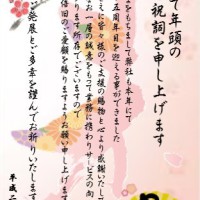 て年頭の
祝詞を申し上げます
をもちまして弊社も本年にて
五周年目を迎える事ができました
えに皆々様のご支援の賜物と心より感謝いたして
の一層の誠意をもって業務に携わりサービスの向
ります所存でございますので
倍旧のご愛顧を賜りますようお願い申し上げます
ご発展とご多幸を謹んでお祈りいたします
平成二